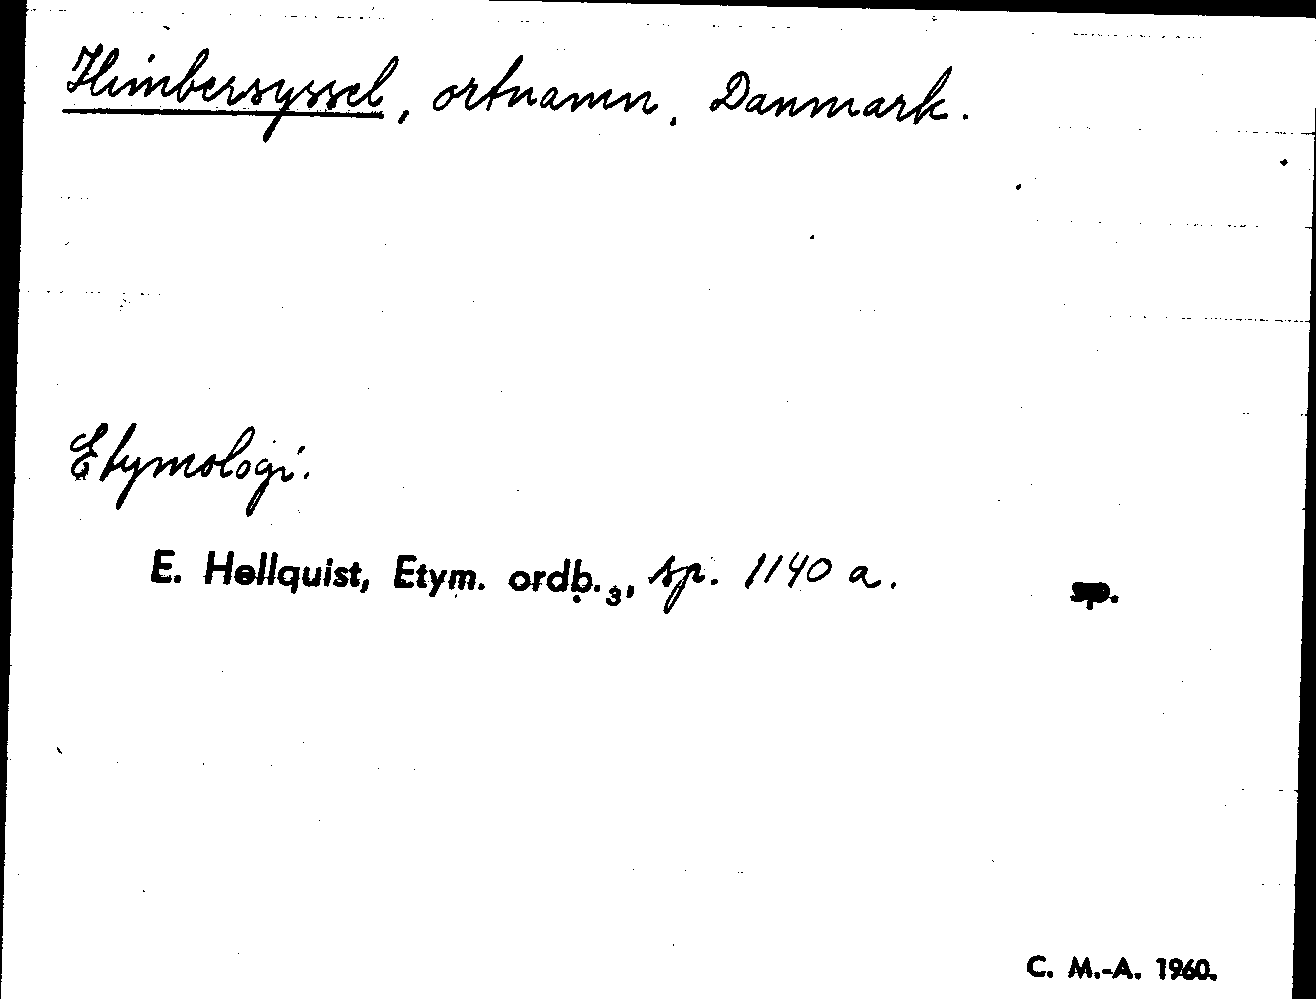 Himbersyssel, ortnamn, Danmark.
Etymologi.
E. Hellquist, Etym. ordb.₃, sp. 1140 a. sp.
C. M.-A. 1960.